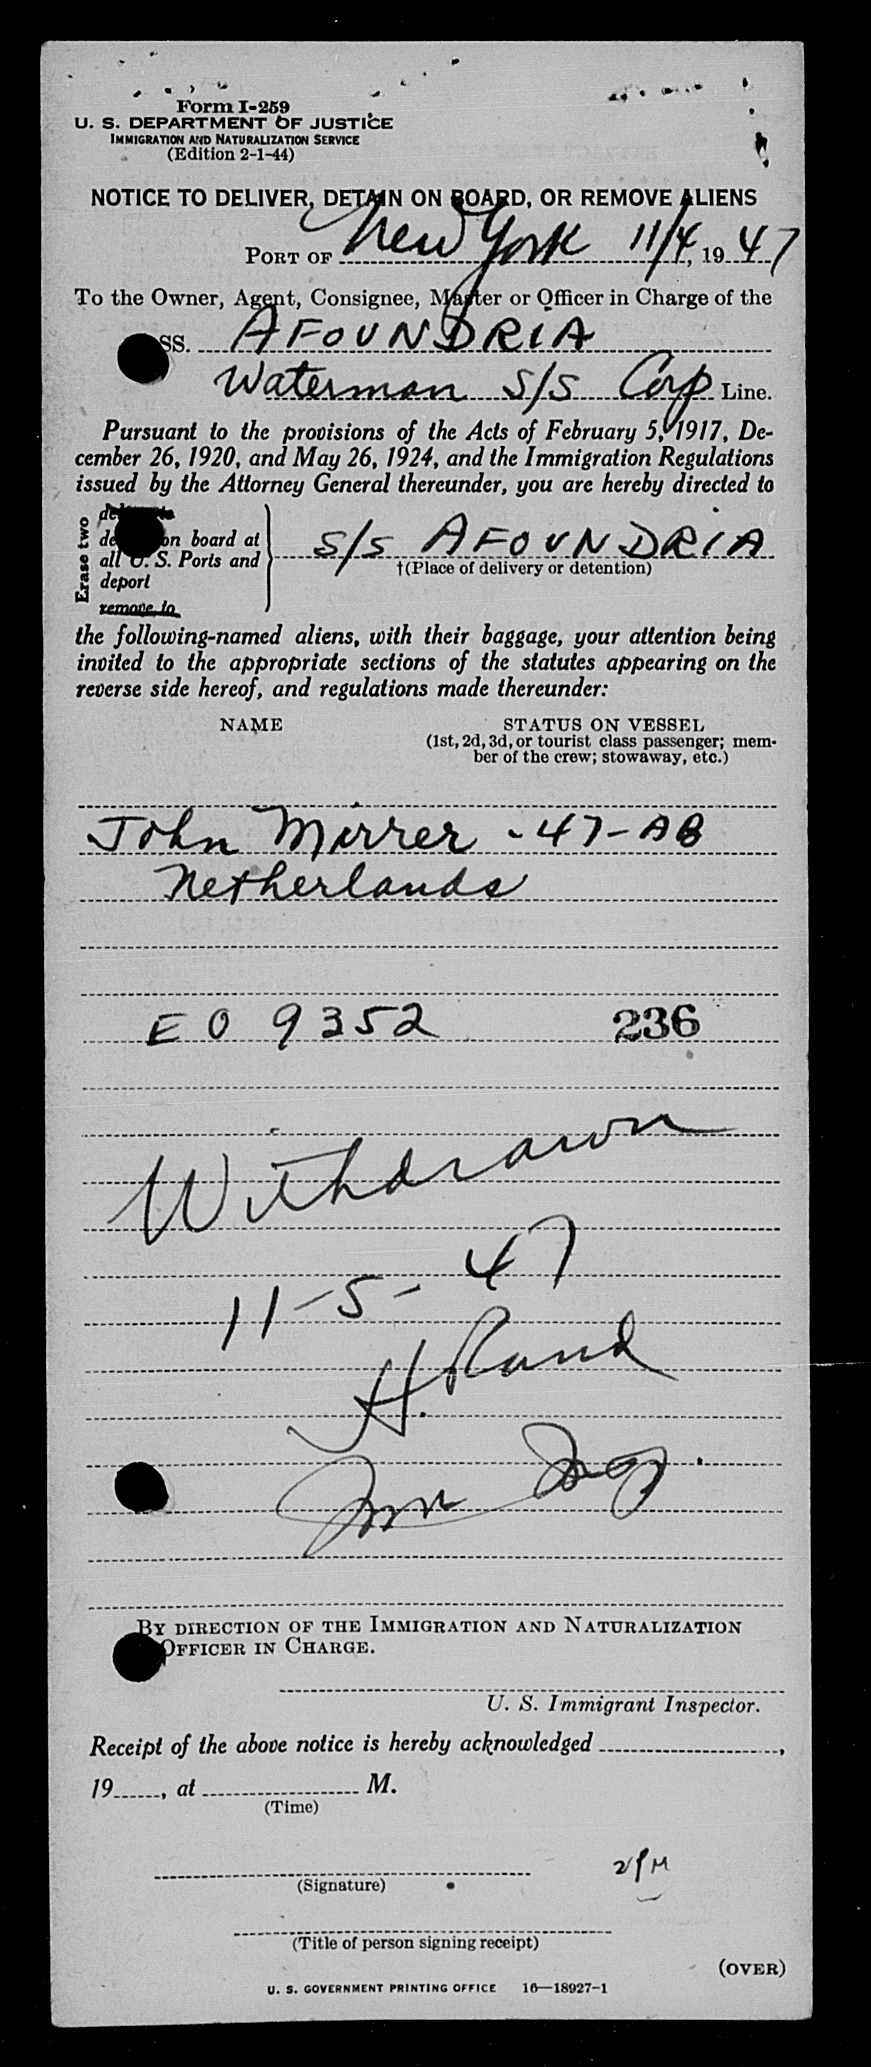 Form I-259
U. S. DEPARTMENT OF JUSTICE
IMMIGRATION AND NATURALIZATION SERVICE
(Edition 2-1-44)
NOTICE TO DELIVER, DETAIN ON BOARD, OR REMOVE ALIENS
PORT OF New York 11/4, 1947
To the Owner, Agent, Consignee, Master or Officer in Charge of the
SS. AFOUNDRIA
Waterman S/S Corp Line.
Pursuant to the provisions of the Acts of February 5, 1917, De-
cember 26, 1920, and May 26, 1924, and the Immigration Regulations
issued by the Attorney General thereunder, you are hereby directed to
Erase two
on board at
all U. S. Ports and
deport
remove to
S/S AFOUNDRIA
†(Place of delivery or detention)
the following-named aliens, with their baggage, your attention being
invited to the appropriate sections of the statutes appearing on the
reverse side hereof, and regulations made thereunder:
NAME STATUS ON VESSEL
(1st, 2d, 3d, or tourist class passenger; mem-
ber of the crew; stowaway, etc.)
John Mirrer - 47 - AB
Netherlands
EO 9352 236
Withdrawn
11-5-47
H. Rand
Imm Insp.
BY DIRECTION OF THE IMMIGRATION AND NATURALIZATION
OFFICER IN CHARGE.
U. S. Immigrant Inspector.
Receipt of the above notice is hereby acknowledged ,
19 , at M.
(Time)
(Signature)
2PM
(Title of person signing receipt)
(OVER)
U. S. GOVERNMENT PRINTING OFFICE 16—18927-1